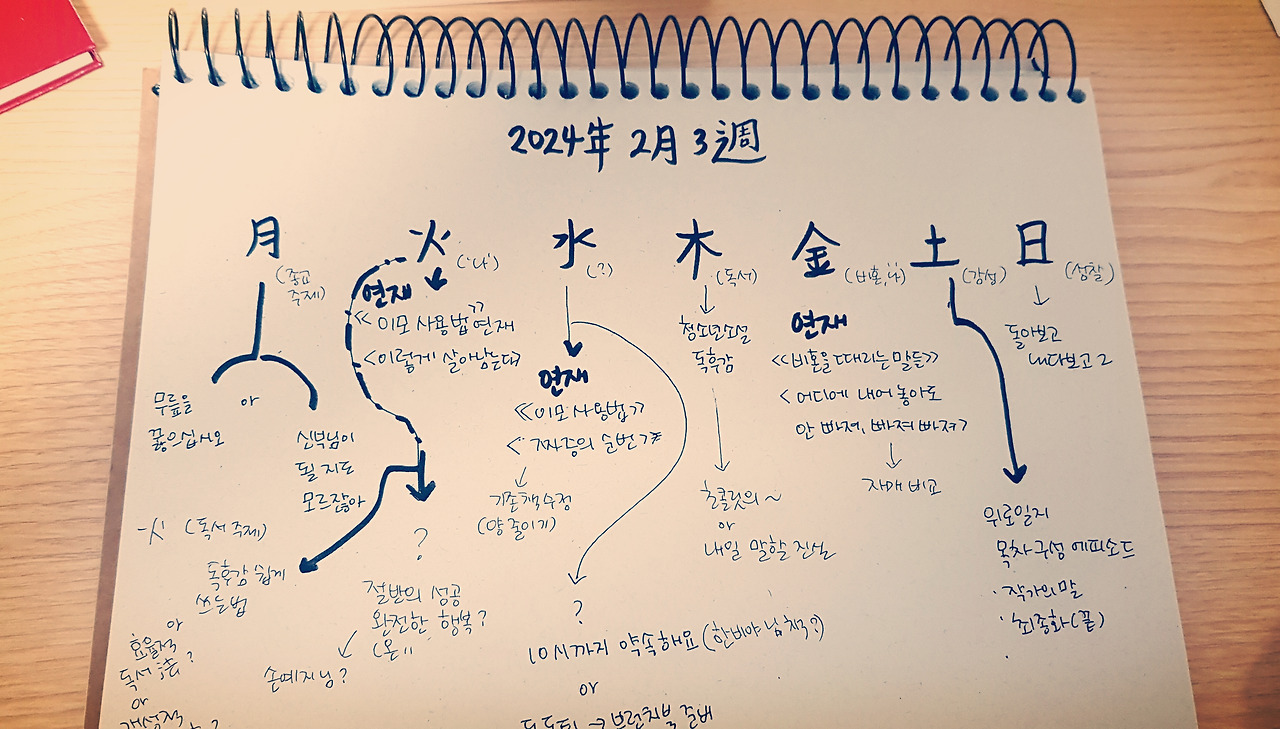 2024年 2月 3週
月
(종교
주제)
무릎을
꿇으십시오
or
신부님이
될 지도
모르잖아
火 (독서 주제)
독후감 쉽게
쓰는 법
or
효율적
독서 法?
or
개성적
火
('나')
연재
《이모 사용법》 연재
<이렇게 살아남는다>
?
절반의 성공
완전한 행복?
(온
손예지님?
水
(?)
연재
《이모 사용법》
기존책 수정
(양 줄이기)
?
10시까지 약속해요 (한비야님 책?)
or
브런치북 준비
木
(독서)
청소년소설
독후감
초콜릿의 ~
or
내일 말할 진실
金
(비혼, 나)
연재
《비혼을 때리는 말들》
<어디에 내어 놓아도
안 빠져, 빠져 빠져>
자매 비교
土
(감성)
위로일지
목차 구성 에피소드
· 작가의 말
· 최종화 (끝)
·
日
(성찰)
돌아보고
내다보고 2